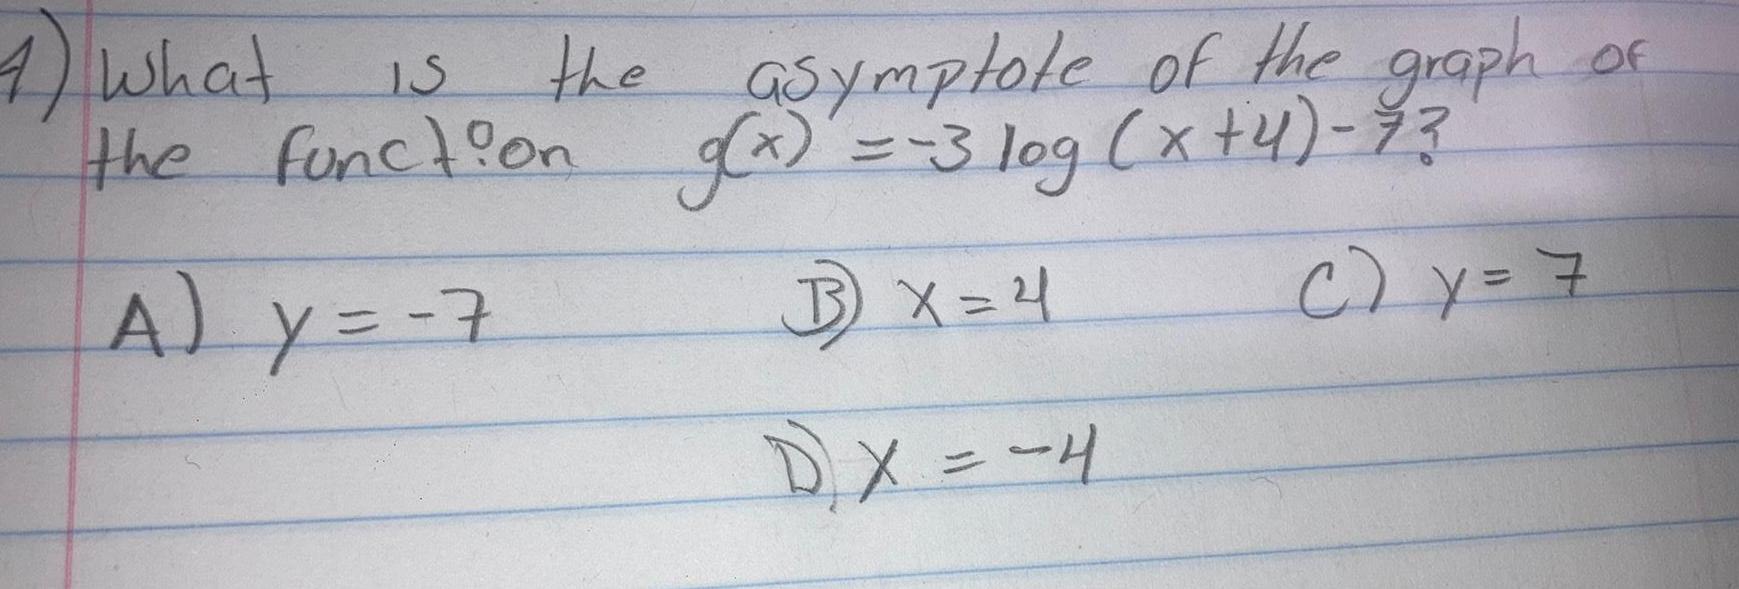 4) What is the asymptote of the graph of
the function g(x) = -3 log (x+4) - 7?
A) y = -7 B) x = 4 C) y = 7
D) x = -4